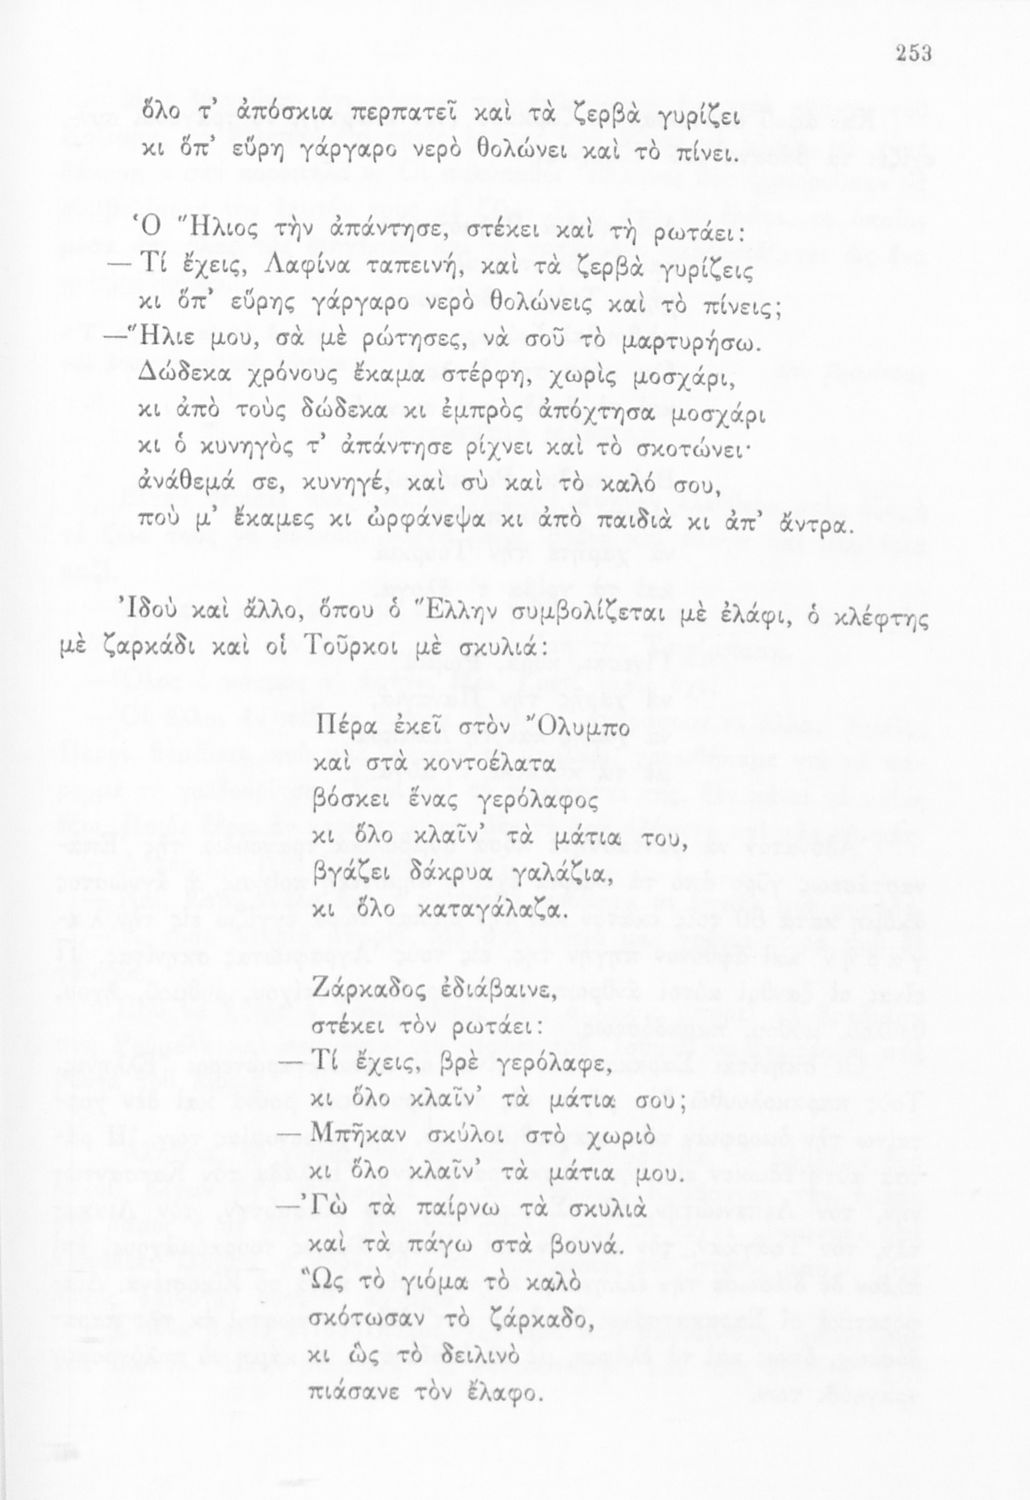 253
ὅλο τ' ἀπόσκια περπατεῖ καὶ τὰ ζερβὰ γυρίζει
κι ὅπ' εὕρῃ γάργαρο νερὸ θολώνει καὶ τὸ πίνει.
Ὁ Ἥλιος τὴν ἀπάντησε, στέκει καὶ τὴ ρωτάει:
— Τί ἔχεις, Λαφίνα ταπεινή, καὶ τὰ ζερβὰ γυρίζεις
κι ὅπ' εὕρῃς γάργαρο νερὸ θολώνεις καὶ τὸ πίνεις;
—Ἥλιε μου, σὰ μὲ ρώτησες, νὰ σοῦ τὸ μαρτυρήσω.
Δώδεκα χρόνους ἔκαμα στέρφη, χωρὶς μοσχάρι,
κι ἀπὸ τοὺς δώδεκα κι ἐμπρὸς ἀπόχτησα μοσχάρι
κι ὁ κυνηγὸς τ' ἀπάντησε ρίχνει καὶ τὸ σκοτώνει·
ἀνάθεμά σε, κυνηγέ, καὶ σὺ καὶ τὸ καλό σου,
ποὺ μ' ἔκαμες κι ὡρφάνεψα κι ἀπὸ παιδιὰ κι ἀπ' ἄντρα.
Ἰδοὺ καὶ ἄλλο, ὅπου ὁ Ἕλλην συμβολίζεται μὲ ἐλάφι, ὁ κλέφτης
μὲ ζαρκάδι καὶ οἱ Τοῦρκοι μὲ σκυλιά:
Πέρα ἐκεῖ στὸν Ὄλυμπο
καὶ στὰ κοντοέλατα
βόσκει ἕνας γερόλαφος
κι ὅλο κλαῖν' τὰ μάτια του,
βγάζει δάκρυα γαλάζια,
κι ὅλο καταγάλαζα.
Ζάρκαδος ἐδιάβαινε,
στέκει τὸν ρωτάει:
— Τί ἔχεις, βρὲ γερόλαφε,
κι ὅλο κλαῖν' τὰ μάτια σου;
— Μπῆκαν σκύλοι στὸ χωριὸ
κι ὅλο κλαῖν' τὰ μάτια μου.
—Ἐγὼ τὰ παίρνω τὰ σκυλιὰ
καὶ τὰ πάγω στὰ βουνά.
Ὣς τὸ γιόμα τὸ καλὸ
σκότωσαν τὸ ζάρκαδο,
κι ὣς τὸ δειλινὸ
πιάσανε τὸν ἔλαφο.